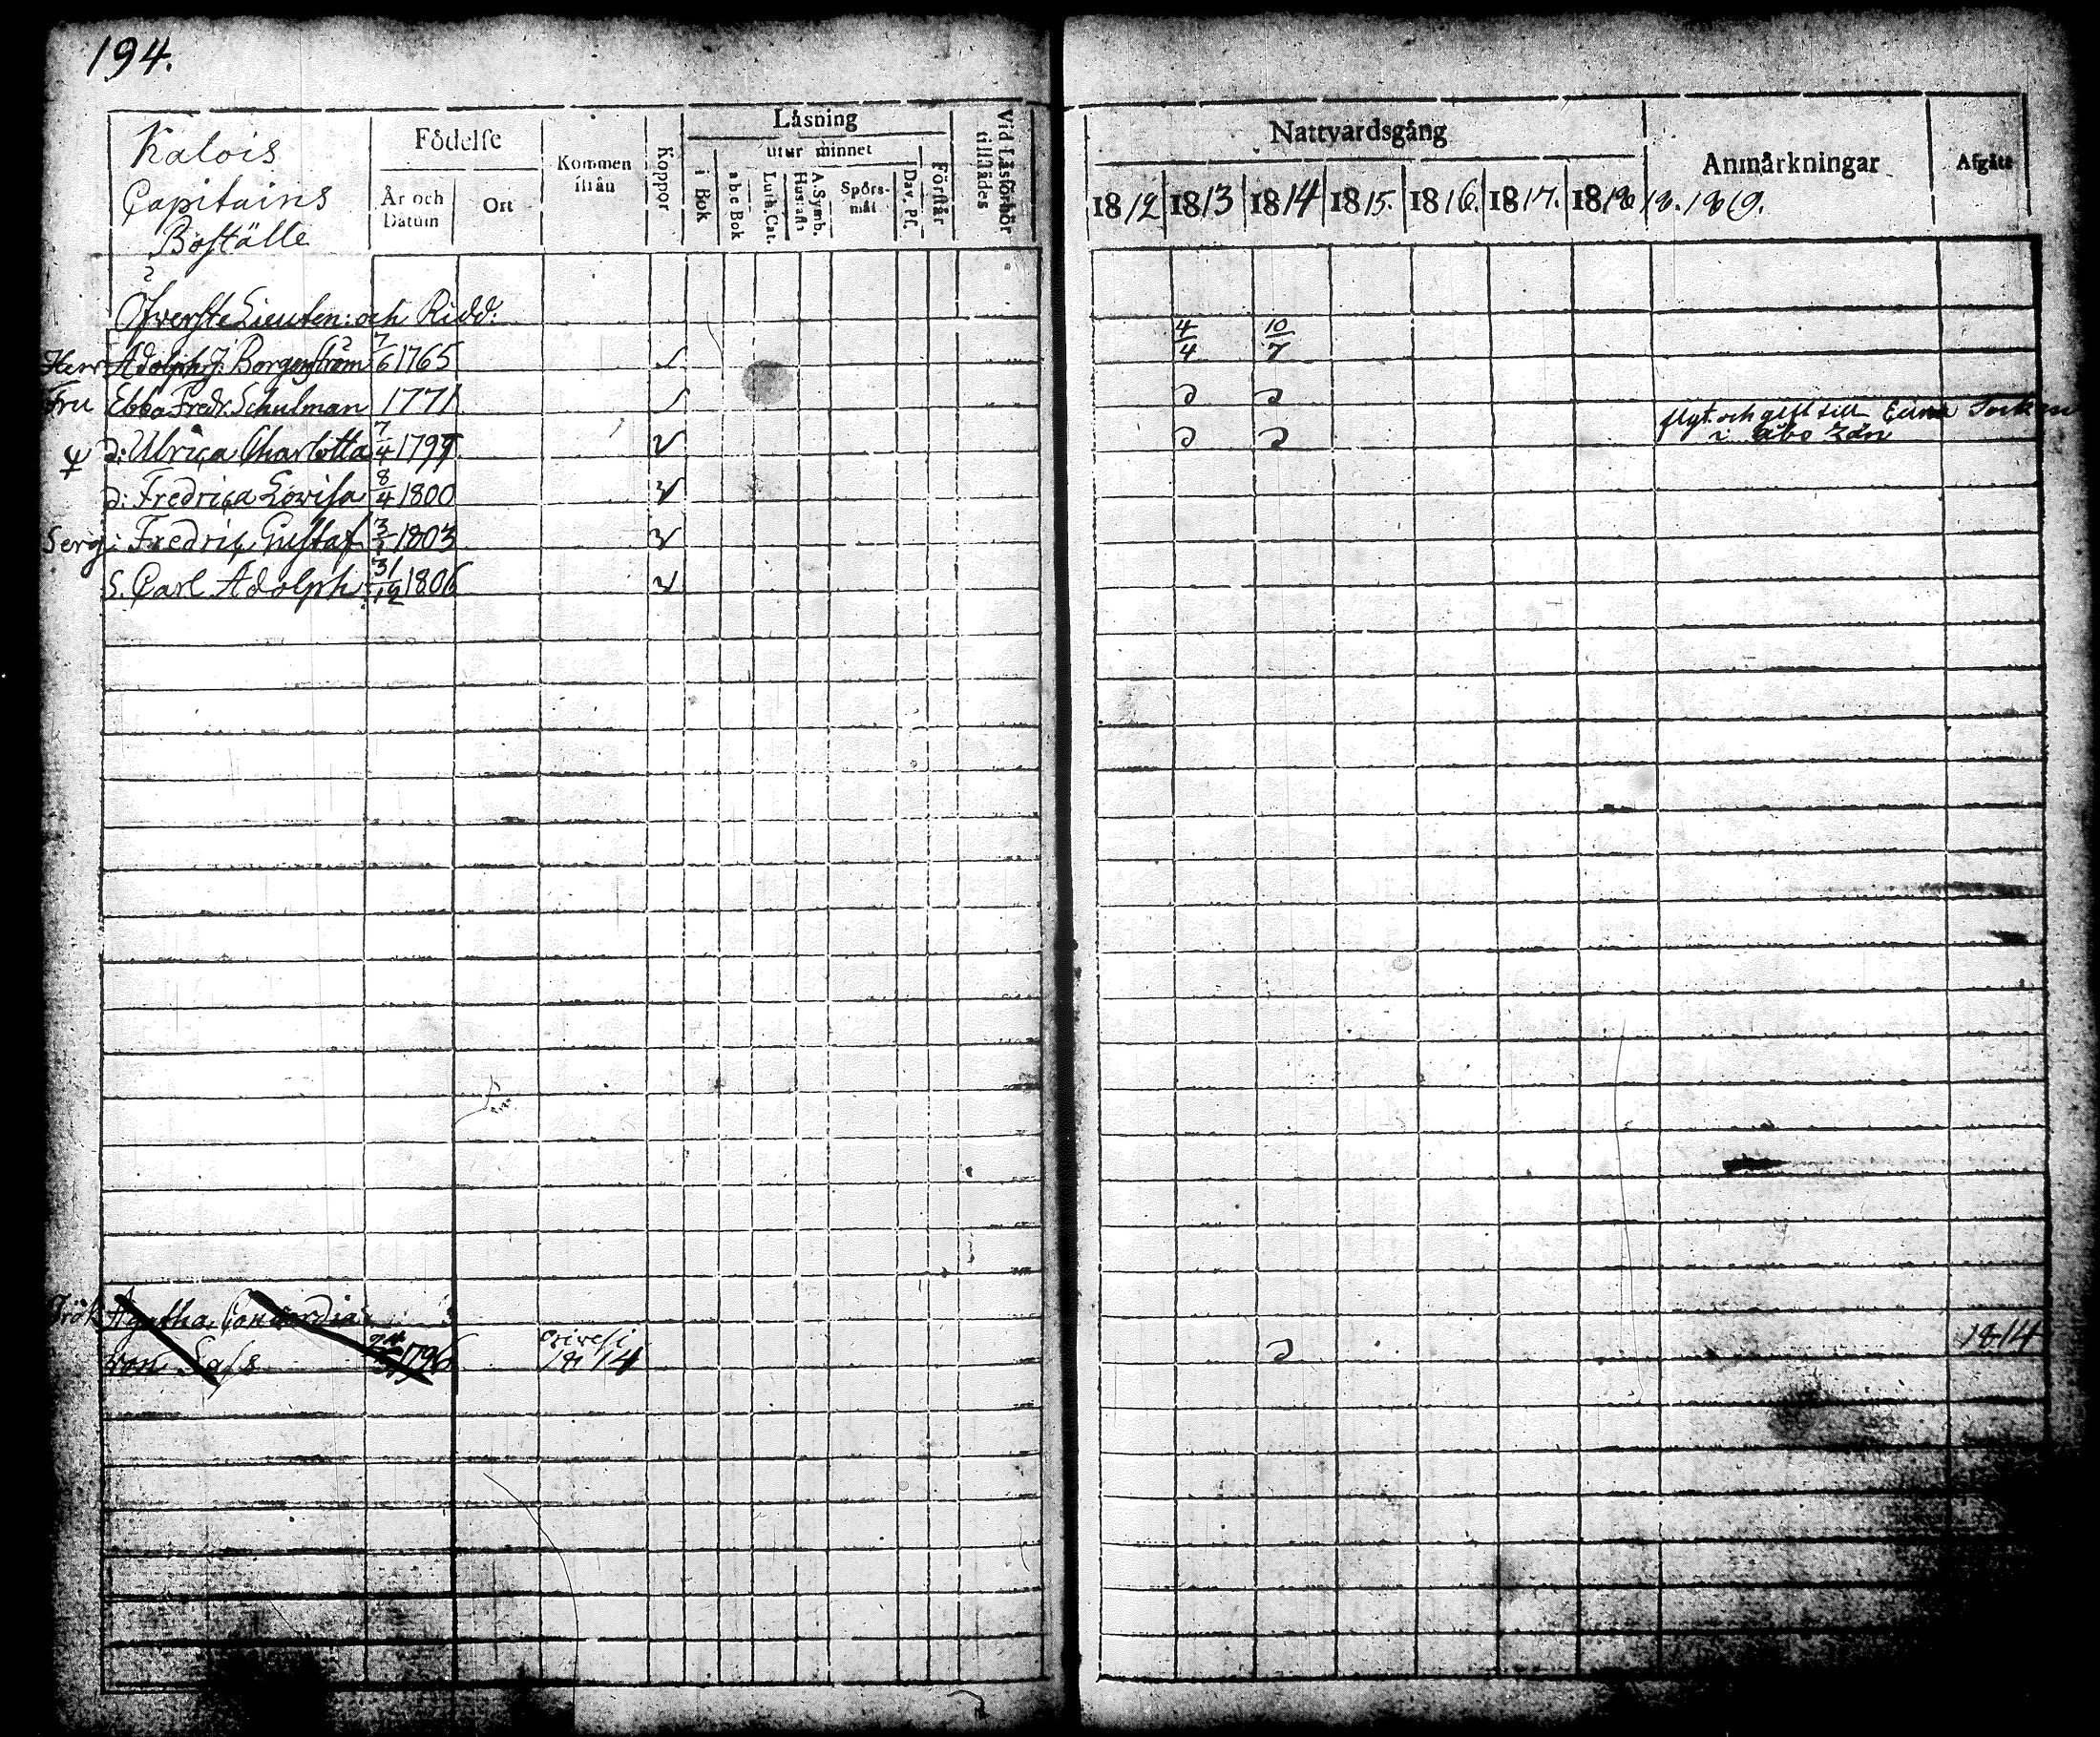 194.
Kalois
Capitains
Boställe
Födelse
År och Datum
Ort
Kommen ifrån
Koppor
Läsning
utur minnet
i Bok
abc Bok
Luth. Cat.
Hustafl.
A. Symb.
Spörs-mål
Dav. Ps.
Förstår
Vid Läsförhör tillstädes
Nattvardsgång
1812 1813 1814 1815. 1816. 1817. 1818 18. 1819.
Anmärkningar
Afgått
Öfverste Lieuten: och Ridd:
Herr Adolph J. Borgenström 7/6 1765 4/4 10/7
Fru Ebba Fredr. Schulman 1771
flyt. och gift till Eura Socken
i Åbo Län
d: Ulrica Charlotta 7/4 1799
d: Fredrica Lovisa 8/4 1800
Serg: Fredric Gustaf 1803
S. Carl Adolph 31/12 1806
Frök Agatha Concordia
von Sass 1796 Orivesi 1814 1814